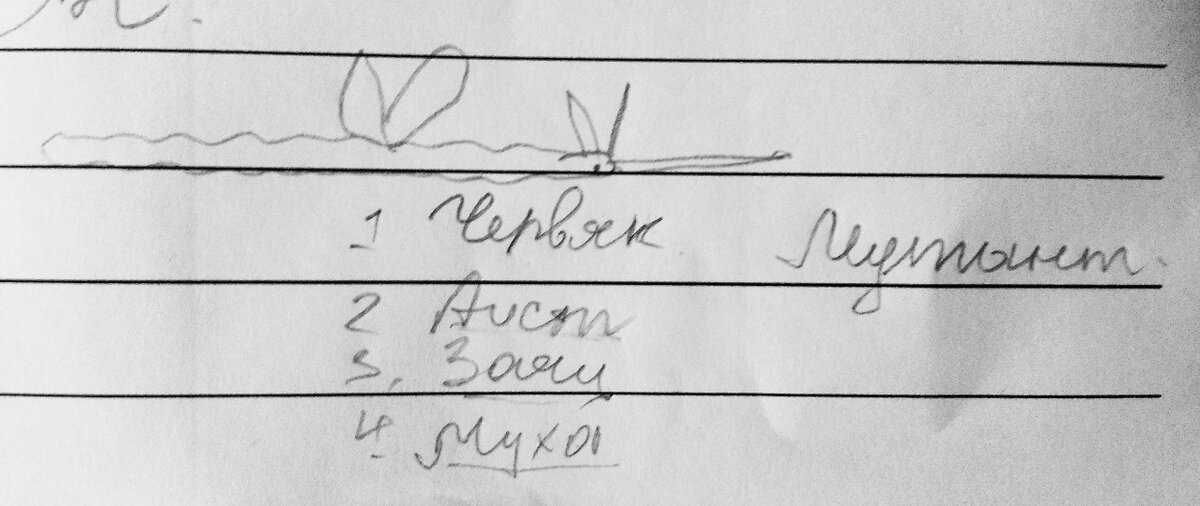 1 Червяк Мутант.
2 Аист
3. Заяц
4. Муха